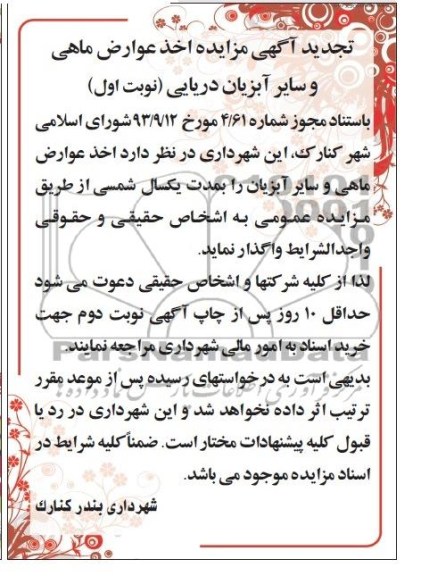 تجدید آگهی مزایده اخذ عوارض ماهی
و سایر آبزیان دریایی (نوبت اول)
باستناد مجوز شماره ۴/۶۱ مورخ ۹۳/۹/۱۲ شورای اسلامی
شهر کنارک، این شهرداری در نظر دارد اخذ عوارض
ماهی و سایر آبزیان را بمدت یکسال شمسی از طریق
مزایده عمومی به اشخاص حقیقی و حقوقی
واجدالشرایط واگذار نماید.
لذا از کلیه شرکتها و اشخاص حقیقی دعوت می شود
حداقل ۱۰ روز پس از چاپ آگهی نوبت دوم جهت
خرید اسناد به امور مالی شهرداری مراجعه نمایند.
ParsNamadData
بدیهی است به درخواستهای رسیده پس از موعد مقرر
ترتیب اثر داده نخواهد شد و این شهرداری در رد یا
قبول کلیه پیشنهادات مختار است. ضمناً کلیه شرایط در
اسناد مزایده موجود می باشد.
شهرداری بندر کنارک